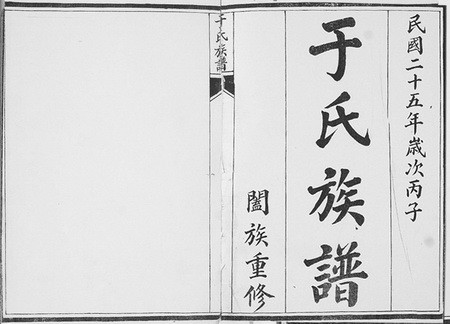 民國二十五年歲次丙子
于氏族譜
闔族重修
于氏族譜